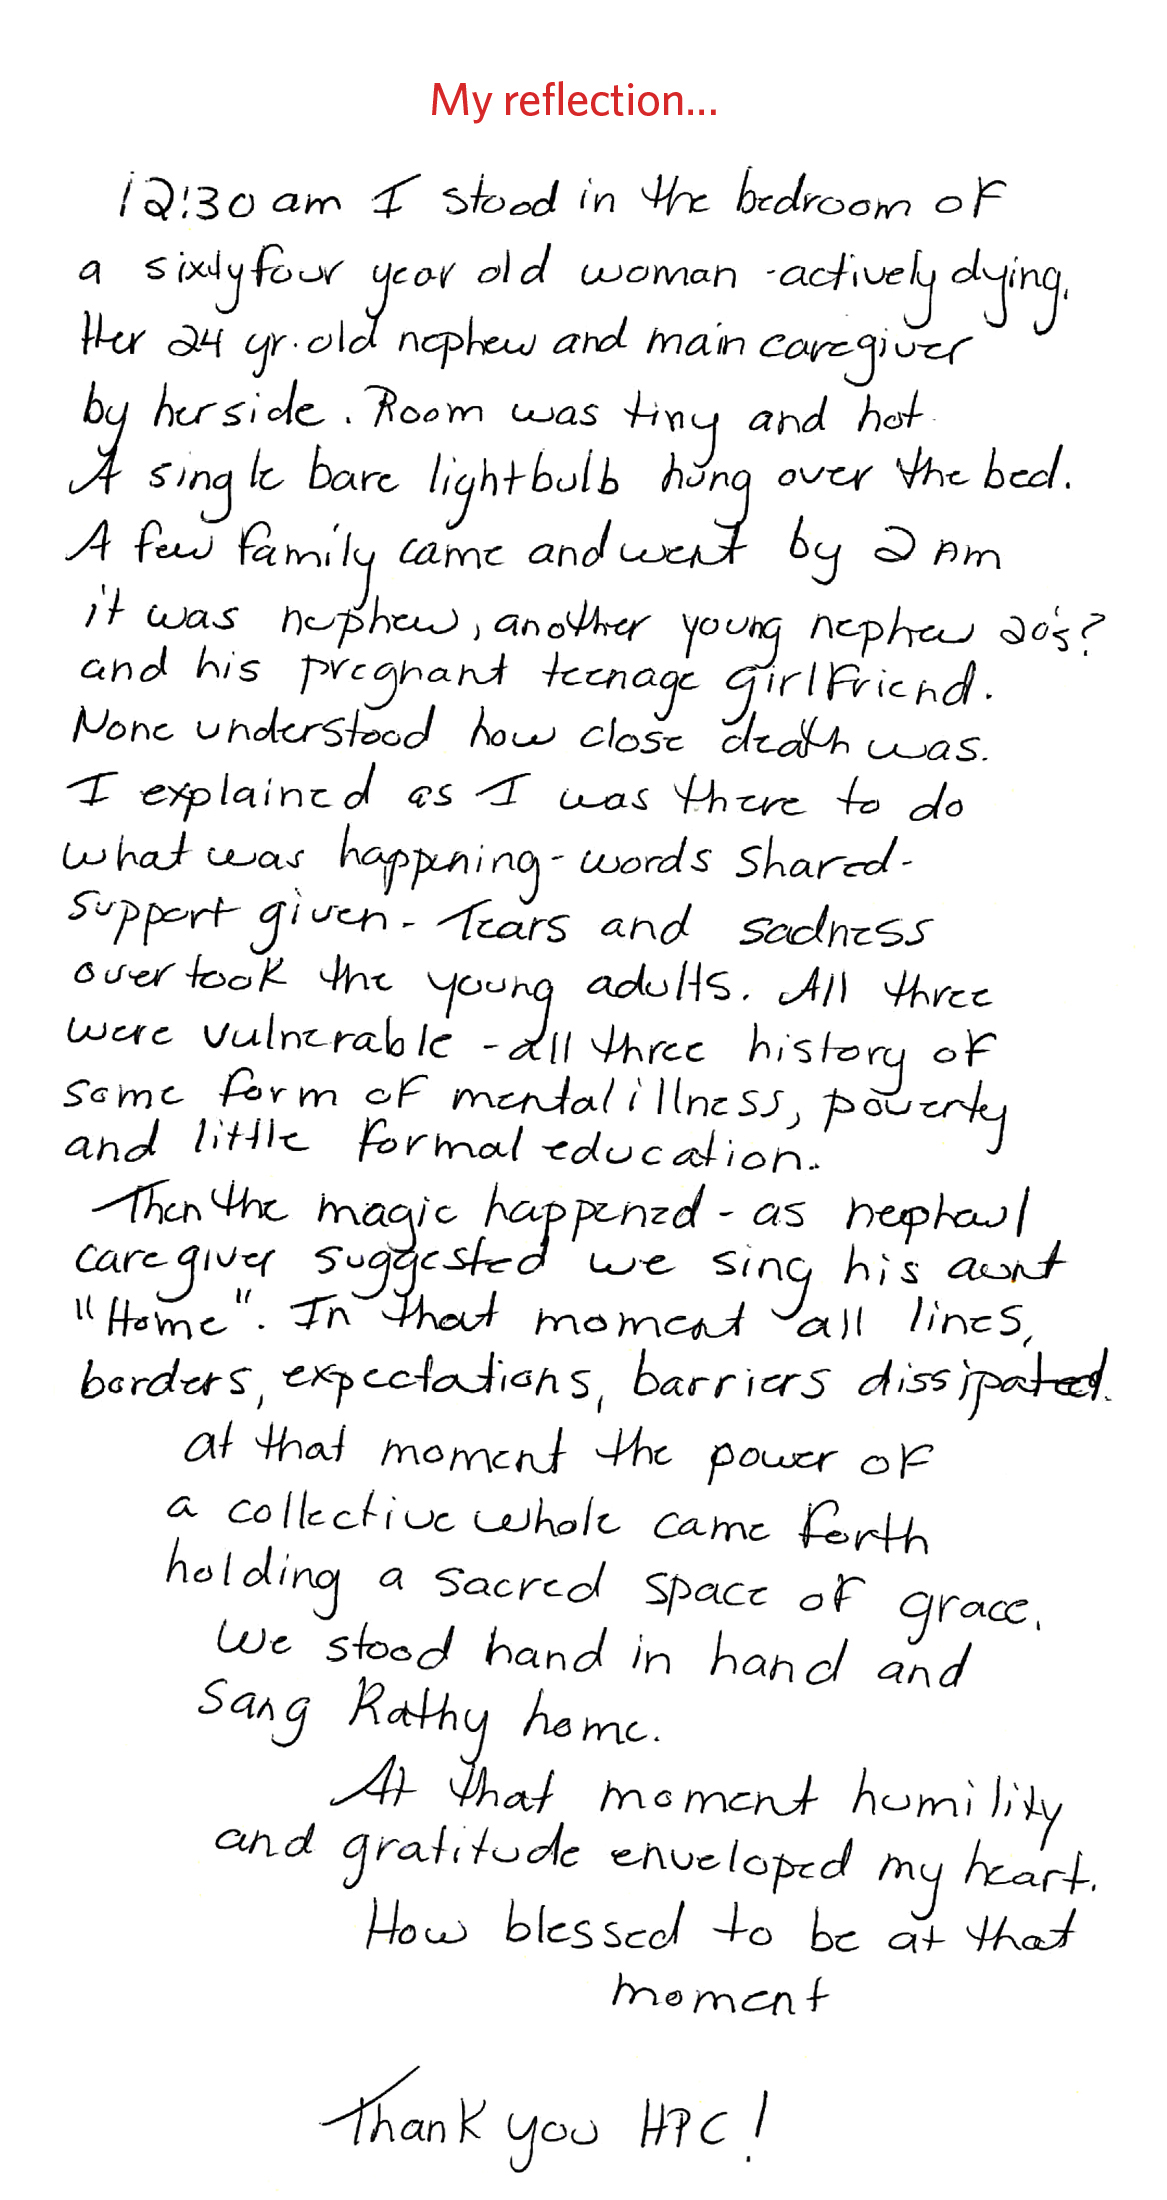 My reflection...
12:30 am I stood in the bedroom of
a sixtyfour year old woman - actively dying.
Her 24 yr. old nephew and main caregiver
by her side. Room was tiny and hot.
A single bare lightbulb hung over the bed.
A few family came and went by 2 AM
it was nephew, another young nephew 20's?
and his pregnant teenage girlfriend.
None understood how close death was.
I explained as I was there to do
what was happening - words shared -
support given - Tears and sadness
overtook the young adults. All three
were vulnerable - all three history of
some form of mental illness, poverty
and little formal education.
Then the magic happened - as nephew/
caregiver suggested we sing his aunt
"Home". In that moment all lines,
borders, expectations, barriers dissipated.
at that moment the power of
a collective whole came forth
holding a sacred space of grace.
We stood hand in hand and
Sang Kathy home.
At that moment humility
and gratitude enveloped my heart.
How blessed to be at that
moment
Thank you HPC!